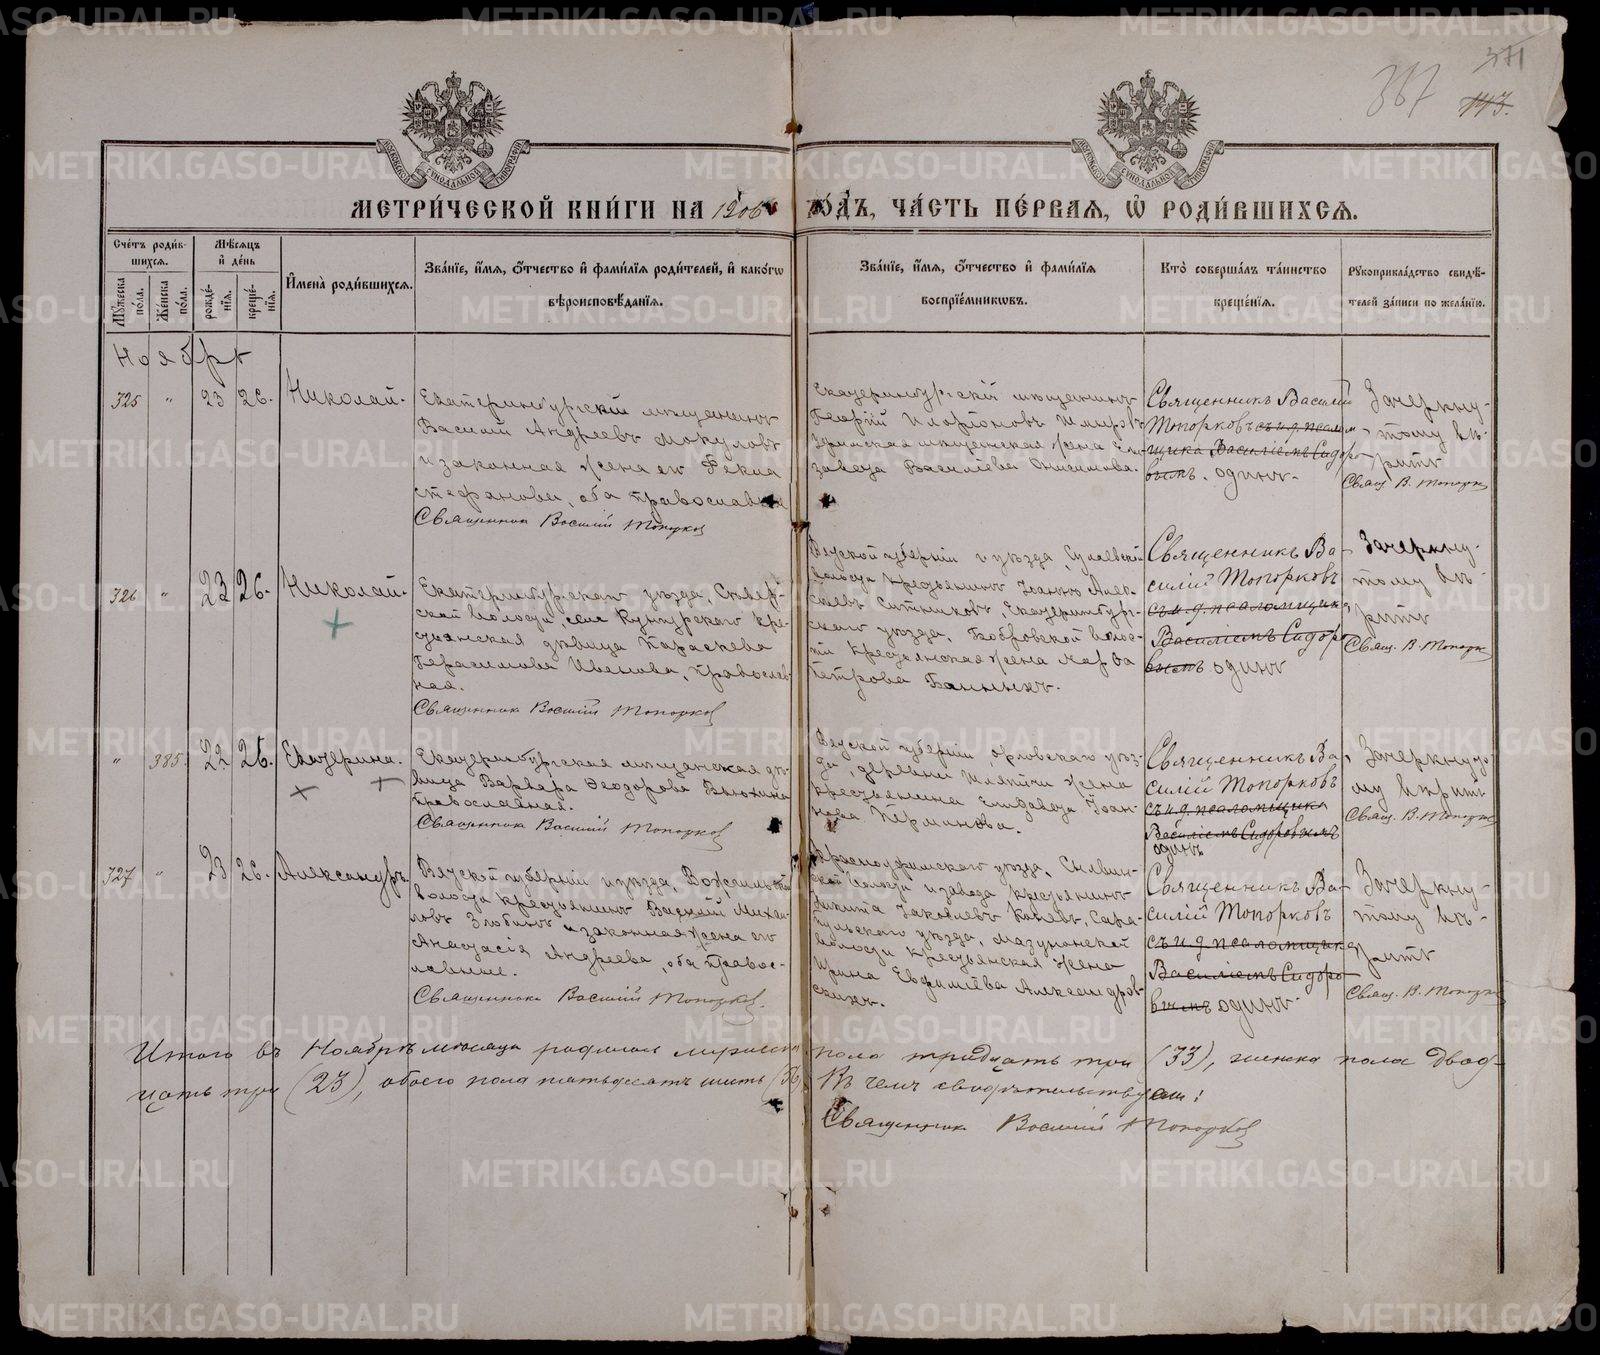 371
367
113.
МЕТРИ́ЧЕСКОЙ КНИ́ГИ НА 1906 ГО́ДЪ, ЧА́СТЬ ПЕ́РВАЯ, Ѡ҆ РОДИ́ВШИХСЯ.
Сче́тъ роди́в-
шихся.
Му́жеска по́ла.
Же́нска по́ла.
Мѣ́сяцъ и҆ де́нь
рожде́нїя.
креще́нїя.
И҆мена̀ роди́вшихся.
Зва́нїе, и҆́мя, ѻ҆́тчество и҆ фами́лїя роди́телей, и҆ како́гѡ
вѣроисповѣ́данїя.
Зва́нїе, и҆́мя, ѻ҆́тчество и҆ фами́лїя
воспрїе́мниковъ.
Кто̀ соверша́лъ та́инство
креще́нїя.
Рꙋкоприкла́дство свидѣ́-
телей за́писи по жела́нїю.
Ноябрь
325 " 23 26. Николай.
Екатеринбургскій мѣщанинъ
Василій Андреевъ
и законная жена его Фекла
Стефанова, оба православные
Священникъ Василій Топорковъ
Екатеринбургскій мѣщанинъ
Георгій Иларіоновъ
мѣщанская жена Ели-
завета Василіева Онисимова.
Священникъ Василій
Топорковъ съ и.д. псалом-
щика Василіемъ Сидоро-
вымъ. одинъ.
Зачеркну-
тому не вѣ-
рить
Свящ. В. Топорк
326 " 23 26. Николай.
Екатеринбургскаго уѣзда,
ской волости, села Кунгурскаго кре-
стьянская дѣвица Параскева
Герасимова Ивенова, православ-
ная.
Священникъ Василій Топорковъ
Вятской губерніи и уѣзда,
волости крестьянинъ Іоаннъ Алек-
сѣевъ Ситниковъ, Екатеринбург-
скаго уѣзда, Бобровской волос-
ти крестьянская жена Марѳа
Петрова Банныхъ.
Священникъ Ва-
силій Топорковъ
съ и.д. псаломщика
Василіемъ Сидоро-
вымъ одинъ
Зачеркну-
тому вѣ-
рить
Свящ. В. Топорк
" 385. 22 26. Екатерина.
Екатеринбургская мѣщанская дѣ-
вица Варвара Ѳеодорова Вьюхина
православная.
Священникъ Василій Топорковъ
Вятской губерніи, Орловскаго уѣз-
да, деревни жена
крестьянина Елизавета Іоан-
нова Перминова.
Священникъ Ва-
силій Топорковъ
съ и.д. псаломщика
Василіемъ Сидоровымъ
одинъ
Зачеркнуто-
му вѣрить
Свящ. В. Топорк
327 " 23 26. Александръ
Вятской губерніи и уѣзда,
волости крестьянинъ Василій Михаи-
ловъ Злобинъ и законная жена его
Анастасія Андреева, оба правос-
лавные.
Священникъ Василій Топорковъ.
Красноуфимскаго уѣзда, Сылвин-
ской волости и завода крестьянинъ
Никита Іаковлевъ Сара-
пульскаго уѣзда, Мазунинской
волости крестьянская жена
Ирина Евфиміева Александров-
скихъ.
Священникъ Ва-
силій Топорковъ
съ и.д. псаломщика
Василіемъ Сидоро-
вымъ одинъ
Зачеркну-
тому вѣ-
рить
Свящ. В. Топорк
Итого въ Ноябрѣ мѣсяцѣ родилось мужеска пола тридцать три (33), женска пола двад-
цать три (23), обоего пола пятьдесятъ шесть (56). Въ чемъ свидѣтельствуемъ:
Священникъ Василій Топорковъ